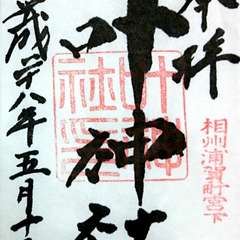 奉拝
相州浦賀町宮下
叶神社
叶神
社印
歳廿八年五月十